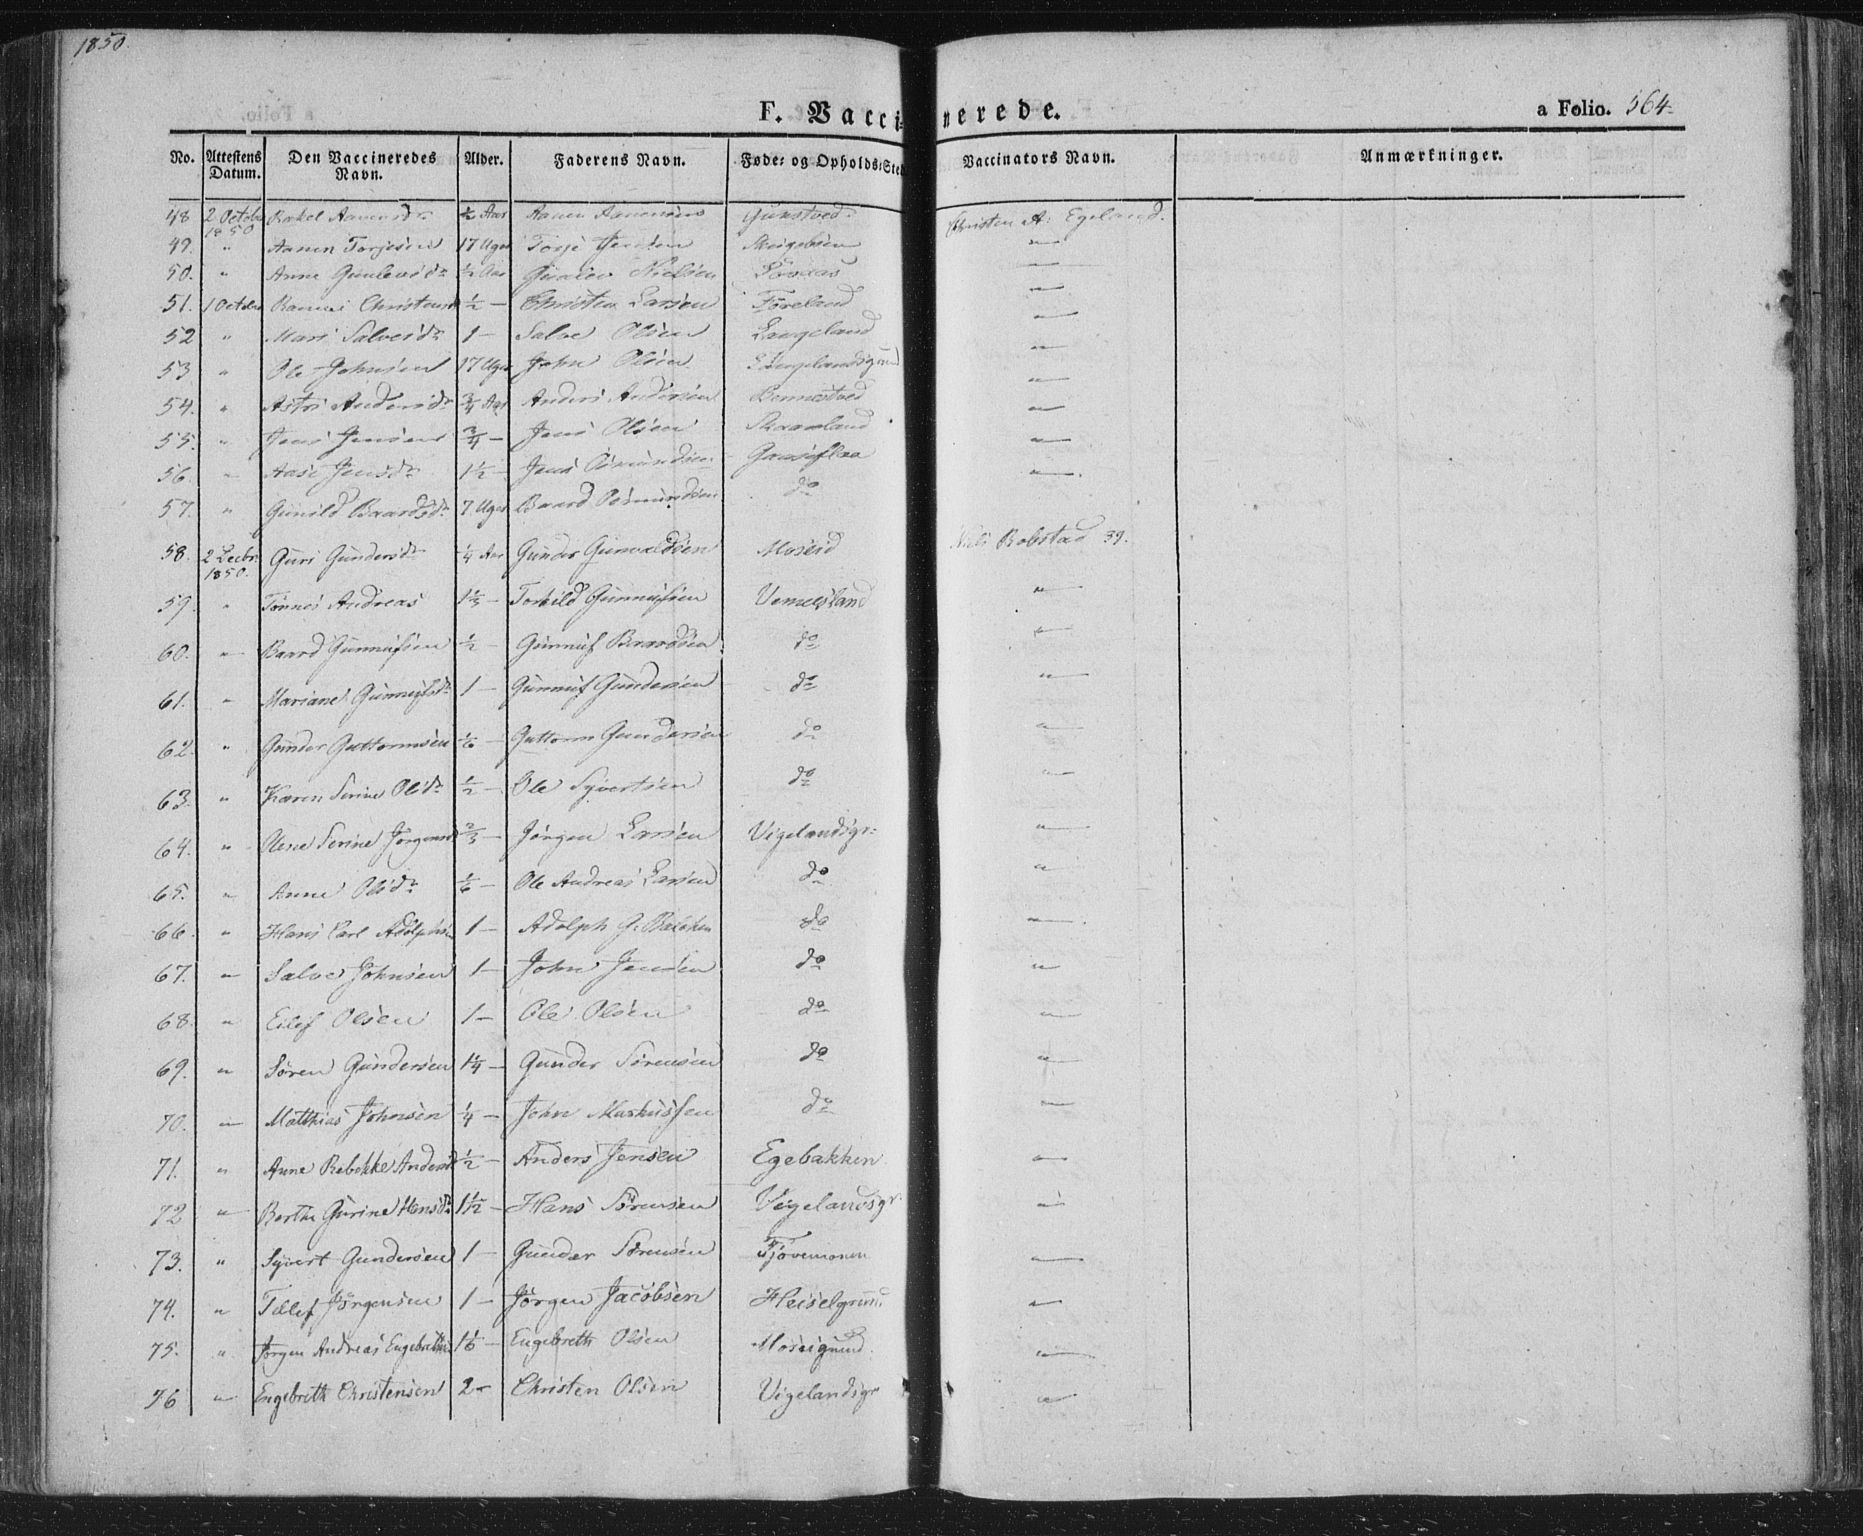 1850.
F. Vaccinerede.
a Folio. 564.
No. Attestens Datum. Den Vaccineredes Navn. Alder. Faderens Navn. Føde- og Opholds-Sted Vaccinators Navn. Anmærkninger.
48 2 Octobr 1850 Rakel Aanensdr ½ Aar Aanen Aanensen Gunstved Christen A. Egeland.
49. " Aanen Torjesen 17 Uger Torje Jensen "
50. " Anne Gunlevsdr ½ Aar Gunlev Nielsen "
51. 1 Octobr Christensdr ½ – Christen Larsen Føreland "
52 " Mari Salvesdr 1 – Salve Olsen Langeland "
53 " Ole Johnsen 17 Uger John Olsen Langelandsgrund "
54. " Astri Andersdr ¾ Aar Anders Andersen "
55. " Jens Jensen ¾ – Jens Olsen Skaarland "
56 " Aase Jensdr 1½ – Jens Osmundsen Gaaseflaa "
57. " Gunild Baardsdr 7 Uger Baard Osmundsen do
58. 2 Decbr 1850. Guri Gundersdr ¼ Aar Gunder Gunvaldsen Moseid Niels Robstad 39.
59. " Tønnes Andreas 1⅓ – Torkild Gunnufsen Vemesland "
60. " Baard Gunnufsen ½ – Gunnuf Baardsen do "
61. " Mariane Gunnufsdr 1 – Gunnuf Gundersen do "
62. " Gunder Guttormsen ⅙ – Guttorm Gundersen do "
63. " Karen Serine Olsdr ½ – Ole Syvertsen do "
64. " Serine Jørgensdr ⅔ – Jørgen Larsen Vigelandsgr: "
65. " Anne Olsdr ⅙ – Ole Andreas Larsen do "
66. " Hans Carl Adolphsen 1 – Adolph G. do "
67. " Salve Johnsen 1 – John Jensen do "
68. " Eilef Olsen 1 – Ole Olsen do "
69. " Søren Gundersen 1¼ – Gunder Sørensen do "
70. " Matthias Johnsen ¼ – John Markussen do "
71. " Anne Rebekke Andersdr ½ – Anders Jensen Egebakken "
72 " Berthe Gurine Hansdr 1½ – Hans Sørensen Vigelandsgr: "
73. " Syvert Gundersen 1 – Gunder Sørensen "
74. " Tellef Jørgensen 1 – Jørgen Jacobsen Heiselgrund "
75. " Jørgen Andreas Engebrethsen 1⅙ – Engebreth Olsen Moseigrund. "
76 " Engebreth Christensen 2 – Christen Olsen Vigelandsgr "